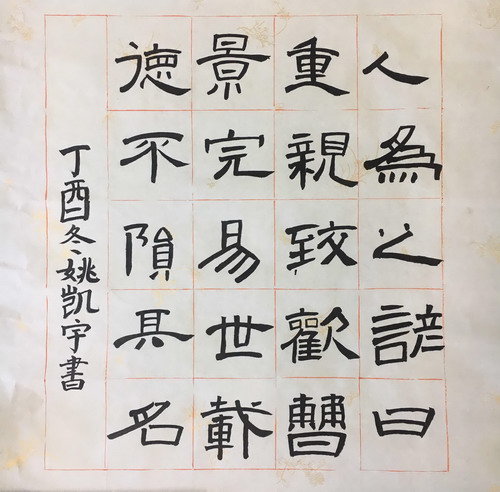 人為之諺曰
重親致歡曹
景完易世載
德不隕其名
丁酉冬、姚凯宇書